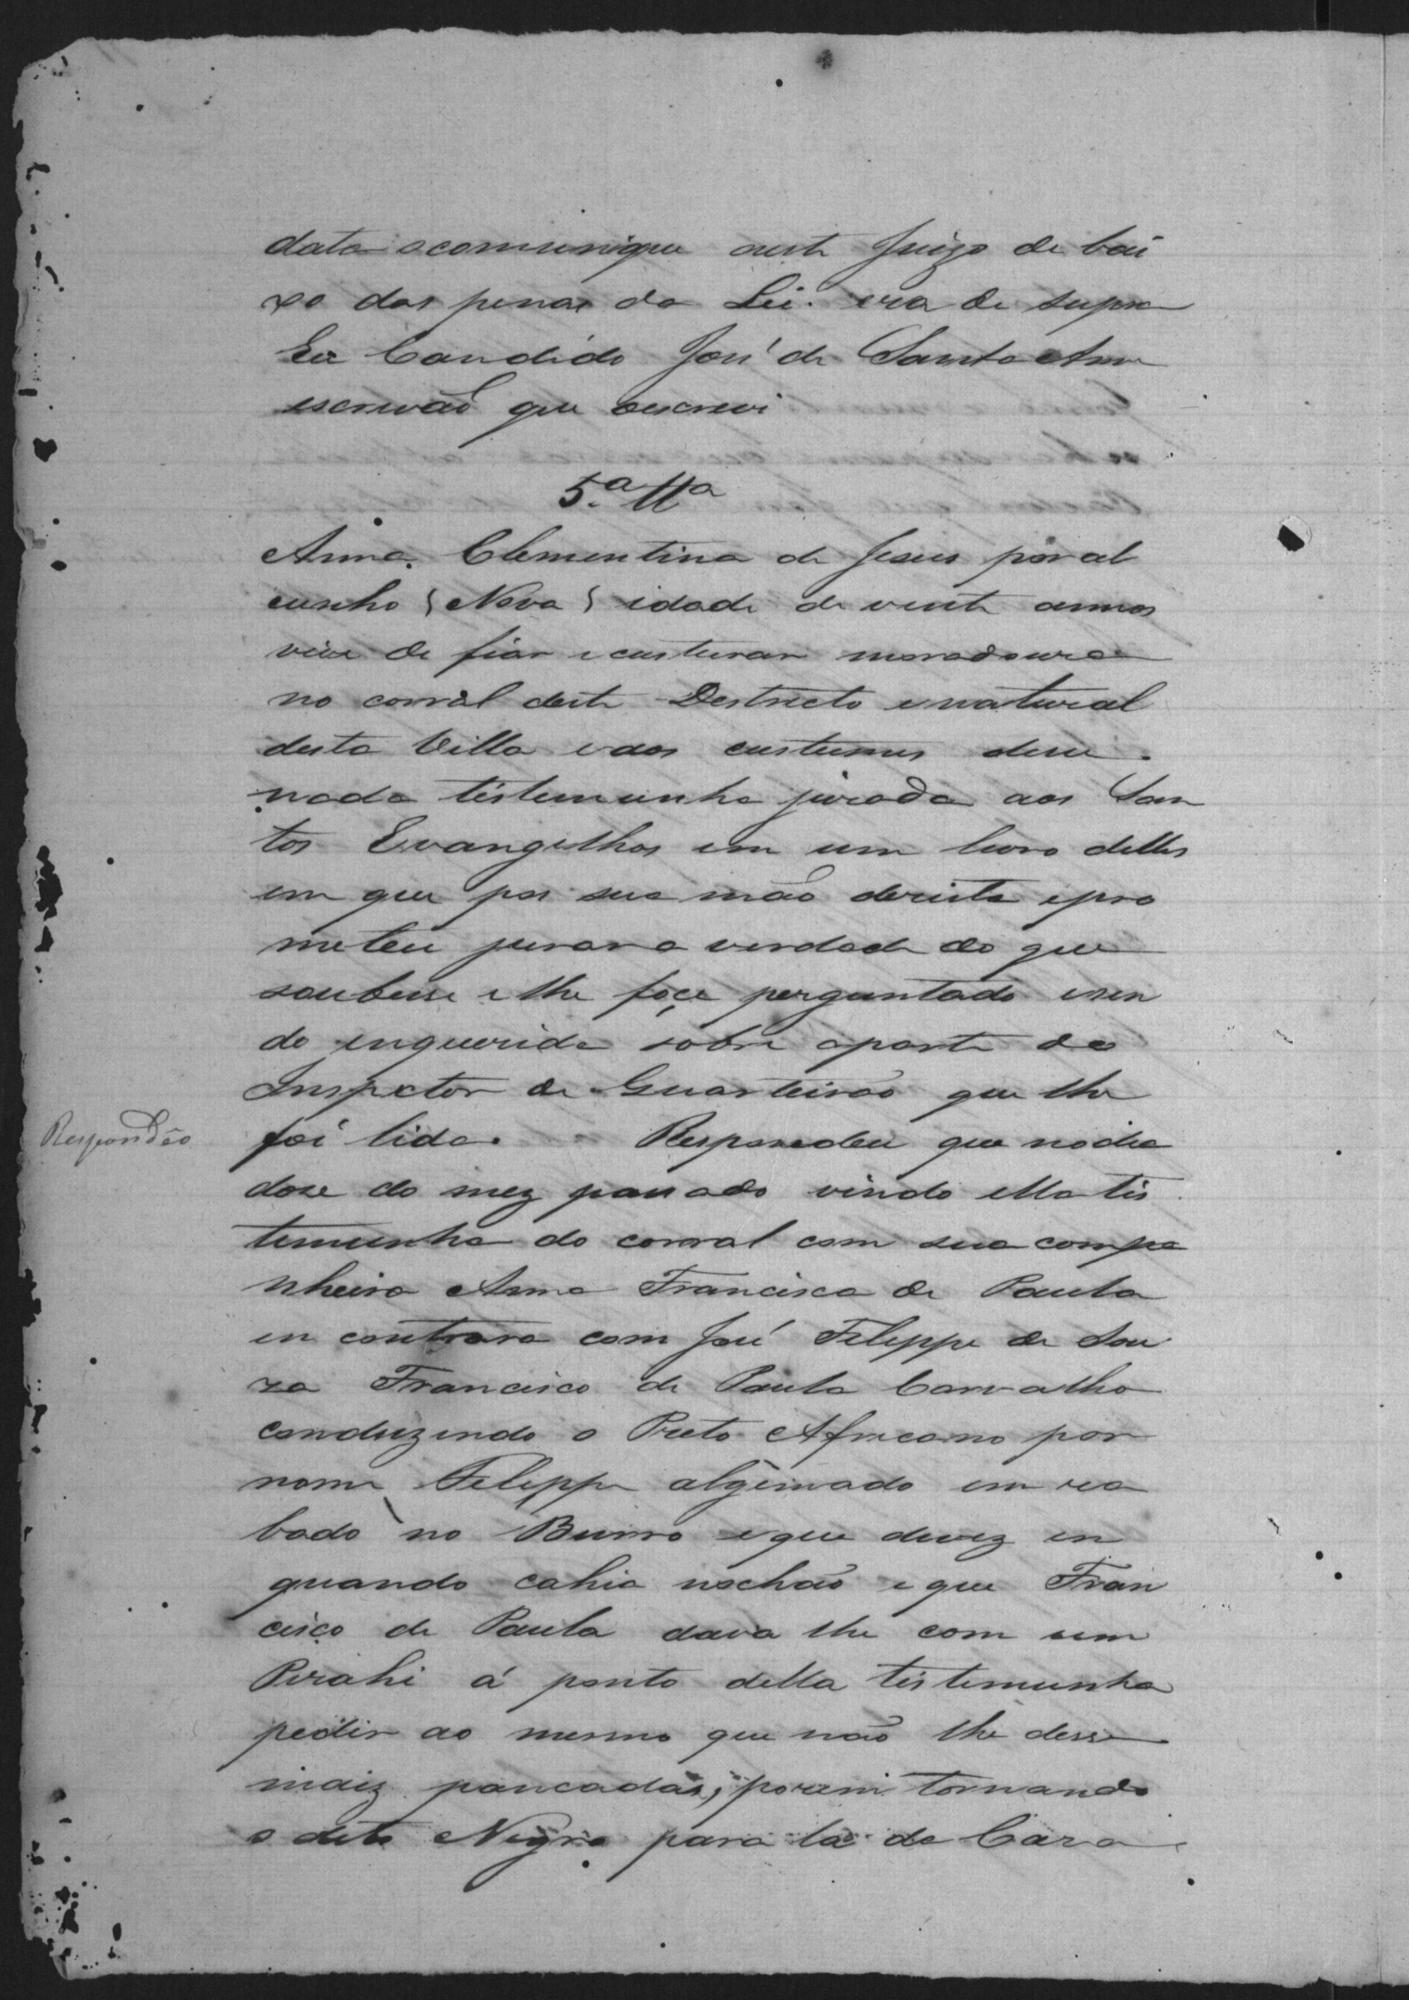 data acomunique neste Juizo de bai
xo das penas da Lei. era de supra
Eu Candido José de Santa Anna
escrivaõ que oescrevi
5.ª Tta
Anna Clementina de Jesus por al
cunho (Nova) idade de vinte annos
vive de fiar e custurar moradoura
no corral deste Destricto e natural
desta Villa e aos custumes disse
nada testemunha jurada aos San
tos Evangelhos em um livro delles
em que pos sua mão dereita epro
meteu jurar a verdade do que
soubesse e lhe foçe perguntado esen
do enquerida sobre aparte do
Inspector de Guarteirão que lhe
foi lida. Respondeu que nodia
Respondêo
dose do mez passado vindo ella tes
temunha do corral com sua compa
nheira Anna Francisca de Paula
en contrara com José Felippe de Sou
za Francisco de Paula Carvalho
conduzindo o Preto Africano por
nome Felippe algemado em ra
bado no Burro e que devez en
quando cahia nochão e que Fran
cisco de Paula dava lhe com um
Pirahi á ponto della testemunha
pedir ao mesmo que não lhe desse
maiz pancadas, porem tornando
o dito Negro para lá da Cara